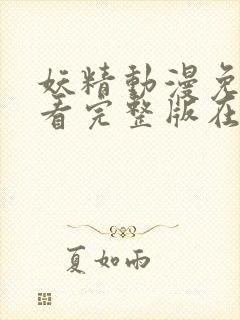 妖精動漫免
看完整版在
夏如雨